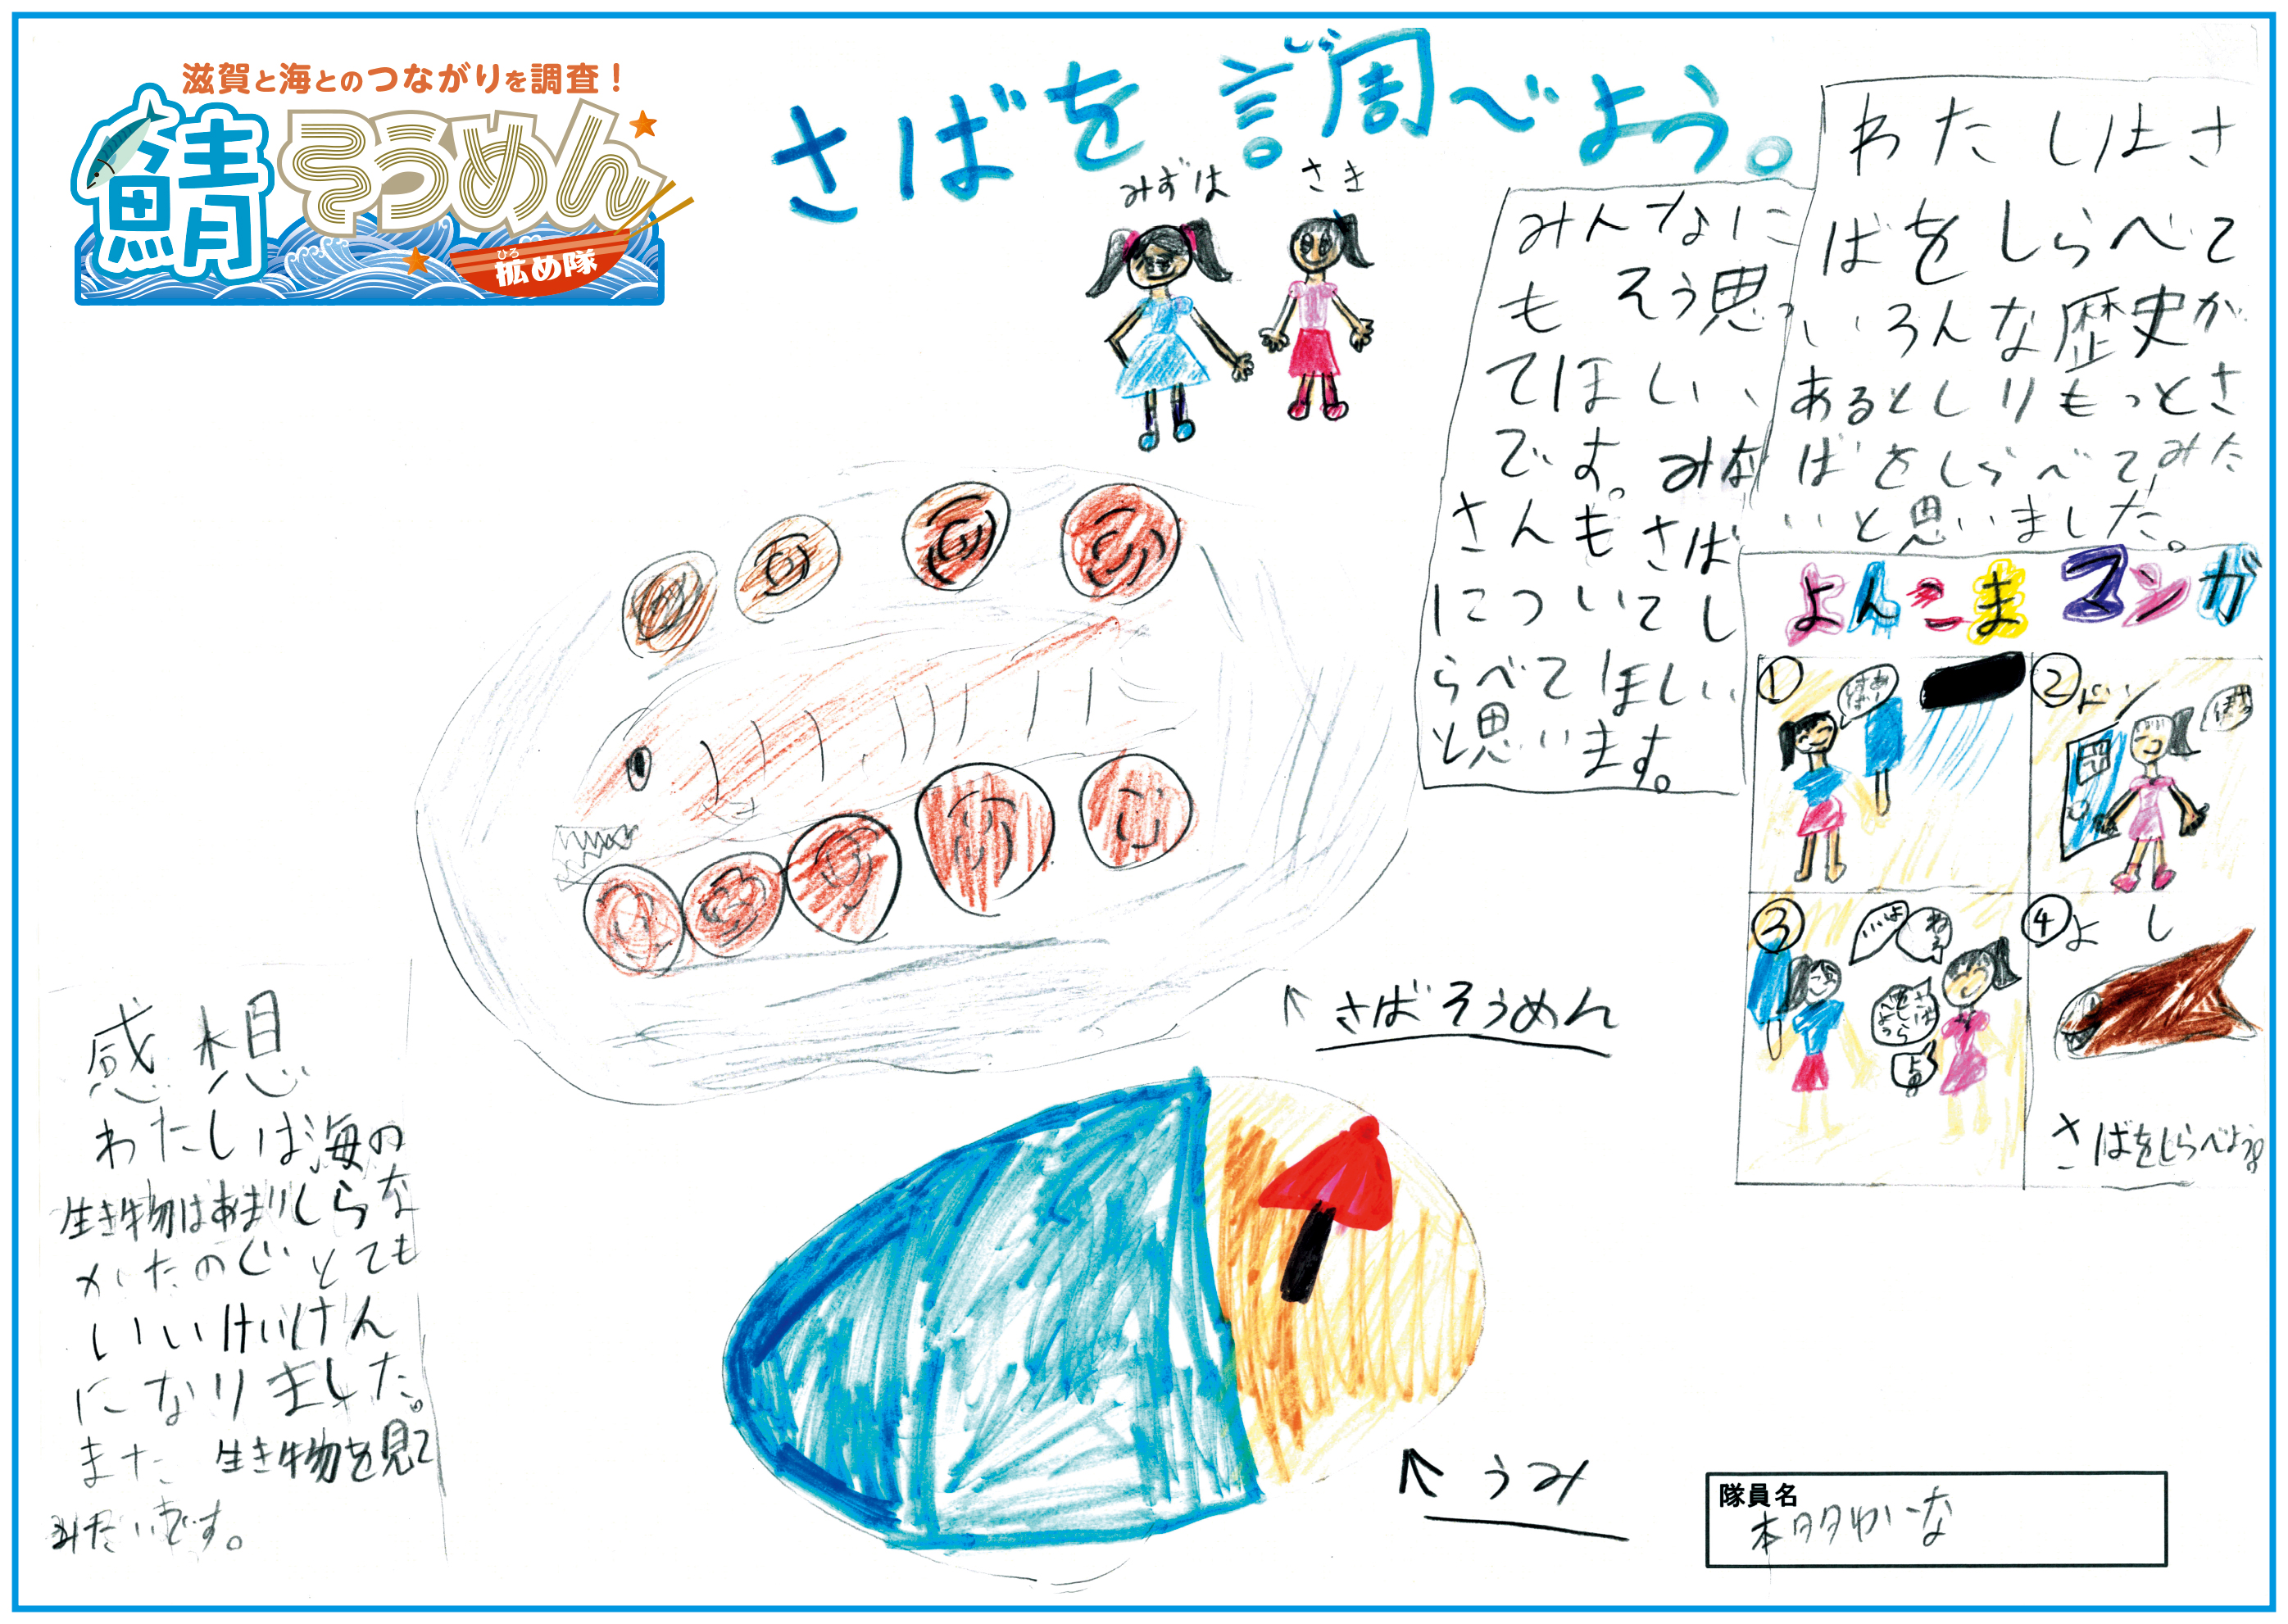 滋賀と海とのつながりを調査！
鯖そうめん
ひろ
拡め隊
さばを調べよう。
みずは
さき
わたしはさ
ばをしらべて
いろんな歴史が
あるとしりもっとさ
ばをしらべてみた
いと思いました。
みんなに
もそう思っ
てほしい、
です。みな
さんもさば
についてし
らべてほしい
と思います。
よんこまマンガ
①
②
ドン
③
いいよ
ねえ
④
よし
さばをしらべよう。
↖さばそうめん
↖うみ
感想
わたしは海の
生き物はあまりしらな
かたのでとても
いいけいけん
になりました。
また生き物を見て
みたいです。
隊員名